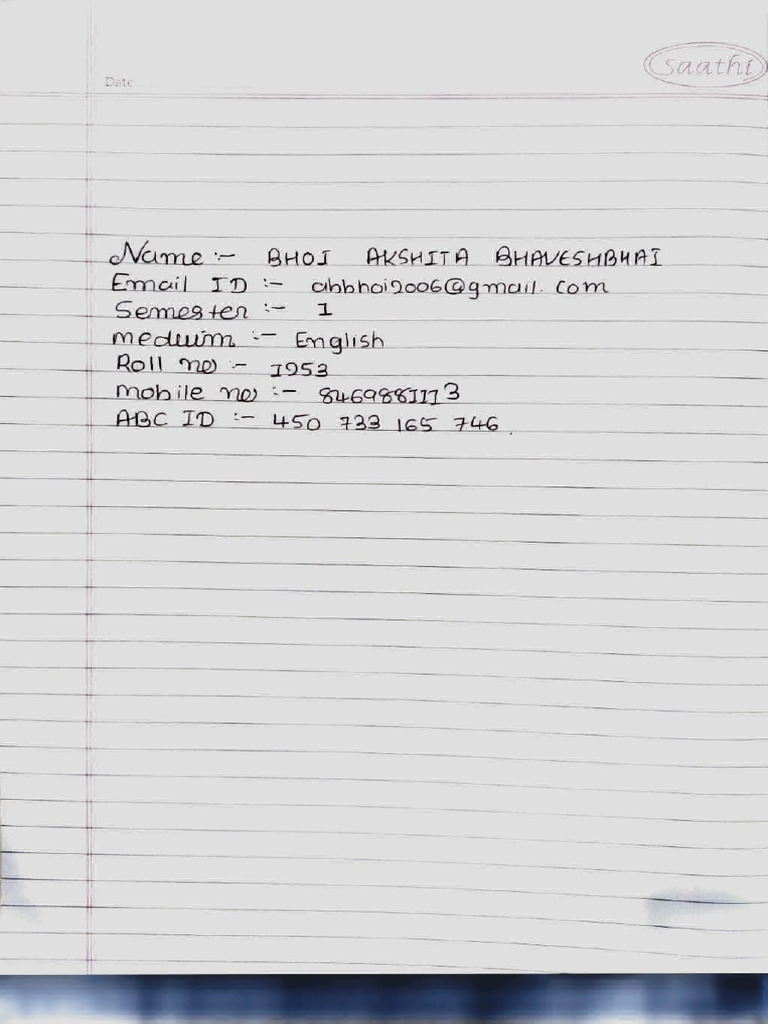 saathi
Date
Name :- BHOI AKSHITA BHAVESHBHAI
Email ID :- abbhoi2006@gmail.com
Semester :- 1
medium :- English
Roll no :- 1953
mobile no :- 8469881113
ABC ID :- 450 733 165 746.